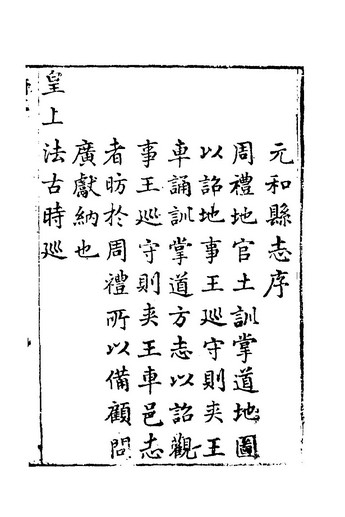 元和縣志序
周禮地官土訓掌道地圖
以詔地事王巡守則夾王
車誦訓掌道方志以詔觀
事王巡守則夾王車邑志
者昉於周禮所以備顧問
廣獻納也
皇上法古時巡